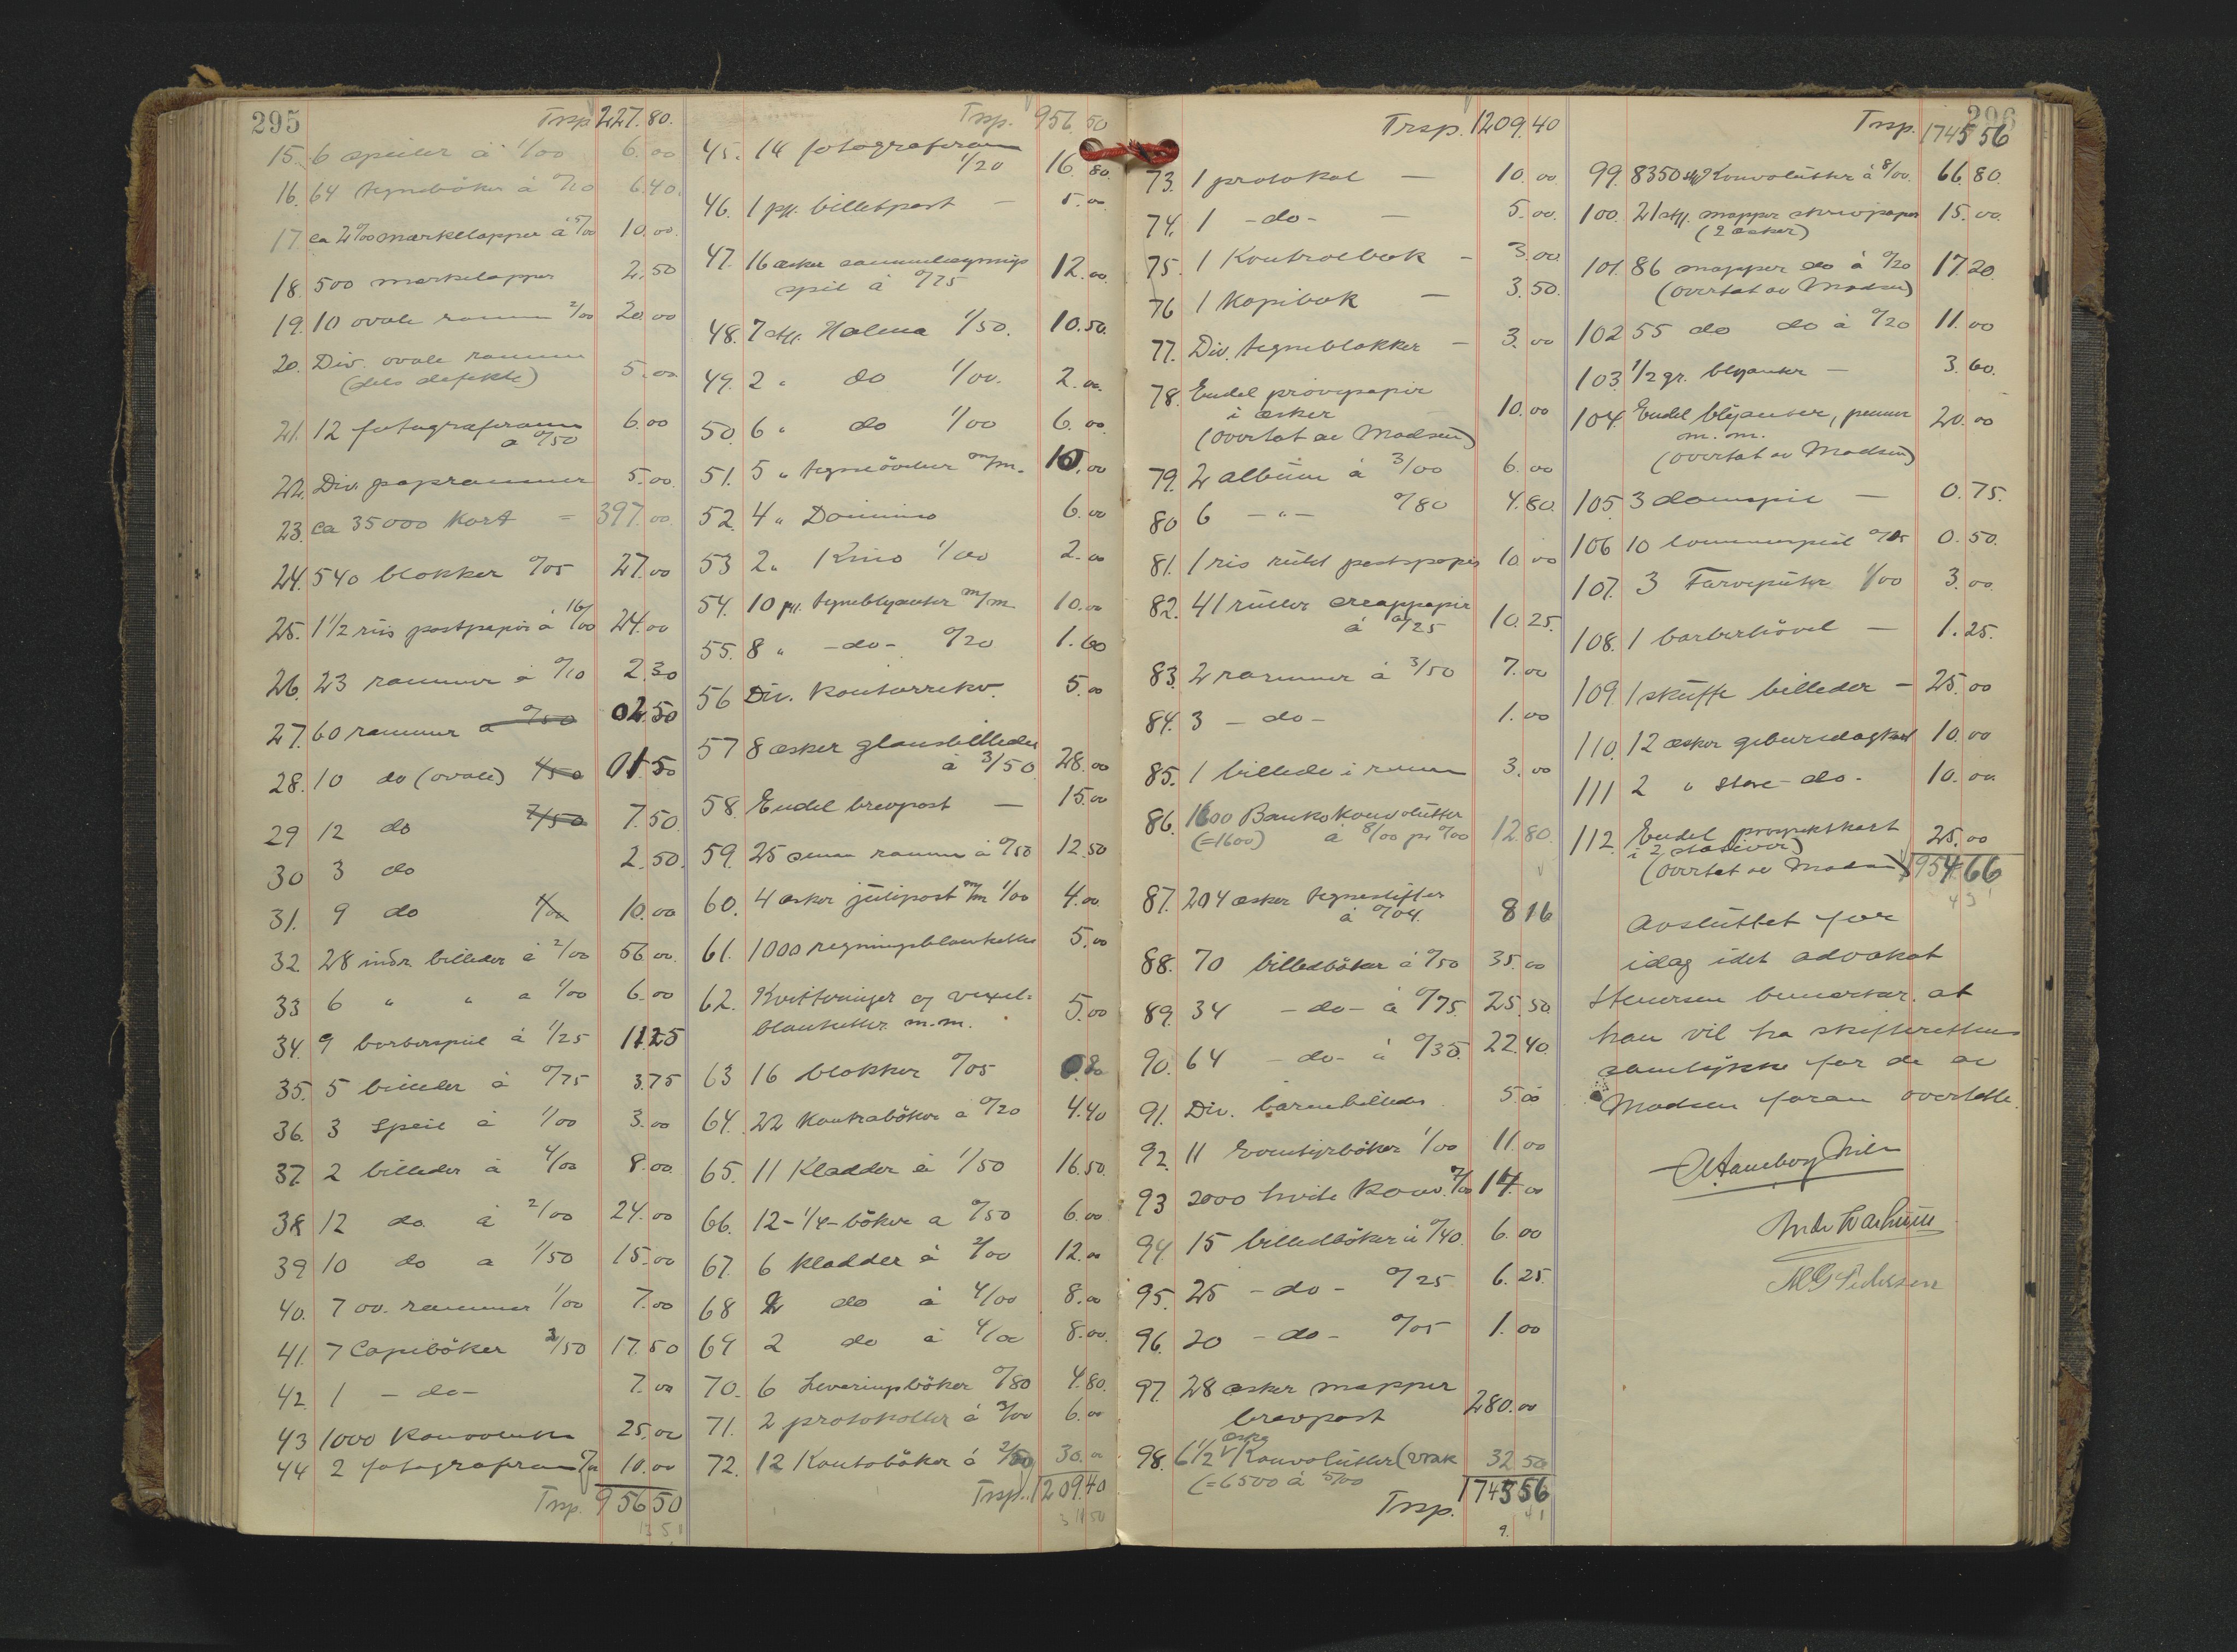 295
Trsp 227.80.
15. 6 speiler à 1/00 6.00
16. 64 tegnebøker à 0/10 6.40.
17 ca 2000 merkelapper à 5/00 10.00.
18. 500 merkelapper 2.50
19. 10 ovale rammer 2/00 20.00
20. Div. ovale rammer
(dels defekte) 5.00
21. 12 fotograframmer
a 0/50 6.00
22. Div. paprammer 5.00.
23. ca 35000 Kort = 397.00.
24. 540 blokker 0/05 27.00
25. 1 1/2 riis postpapir à 16/00 24.00
26. 23 rammer à 0/10 2.30
27. 60 rammer a 0/50 02.50
28. 10 do (ovale) 1/50 01.50
29 12 do 2/50 7.50.
30 3 do 2.50.
31. 9 do 4/00 10.00
32. 28 indr. billeder à 2/00 56.00.
33 6 " " a 1/00 6.00
34. 9 barberspeil à 1/25 11.25
35. 5 billeder à 0/75 3.75
36. 3 Speil à 1/00 3.00
37. 2 billeder à 4/00 8.00
38 12 do à 2/00 24.00
39 10 do a 1/50 15.00
40. 7 ov. rammer 1/00 7.00
41. 7 Copibøker 2/50 17.50
42. 1 - do - 7.00
43 1000 konvolutter 25.00
44 2 fotograframmer 10.00
Trsp. 956.50
Trsp. 956.50
45. 14 fotograframmer
1/20 16.80.
46. 1 pk. billetpost - 5.00
47. 16 æsker sammenlægnings
spil à 0/75 12.00.
48. 7 stk. Halma 1/50. 10.50.
49. 2 " do 1/00. 2.00.
50. 6 " do 1/00 6.00.
51. 5 " tegneøvelser m/m. 10.00
52. 4 " Domino 6.00
53 2 " Kino 1/00 2.00
54. 10 pk. tegneblyanter m/m 10.00
55. 8 " - do - 0/20 1.60
56 Div. kontorrekv. 5.00
57 8 æsker glansbilleder
à 3/50 28.00
58. Endel brevpost - 15.00
59. 25 smaa rammer à 0/50 12.50
60. 4 æsker julepost m/m 1/00 4.00
61. 1000 regningsblanketter 5.00
62. Kvitteringer og vexel=
blanketter m.m. 5.00
63 16 blokker 0/05 0.80
64. 22 kontrabøker a 0/20 4.40
65. 11 Kladder à 1/50 16.50.
66. 12 - 1/4 - bøker a 0/50 6.00
67. 6 kladder à 2/00 12.00
68 2 do à 4/00 8.00
69 2 do à 4/00 8.00.
70. 6 Leveringsbøker 0/80 4.80.
71. 2 protokoller à 3/00 6.00
72. 12 Kontobøker à 2/50 30.00
Trsp. 1209.40
Trsp. 1209.40
73. 1 protokol - 10.00
74. 1 - do - - 5.00.
75. 1 Kontrolbok - 3.00
76 1 Kopibok - 3.50.
77. Div. tegneblokker - 3.00
78. Endel prøvepapir
i æsker 10.00
(overtat av Madsen)
79. 2 album à 3/00 6.00
80 6 - " - 0/80 4.80.
81. 1 ris rutet postpapir 10.00
82. 41 ruller creappapir
à 0/25 10.25.
83. 2 rammer à 3/50 7.00
84. 3 - do - 1.00
85. 1 billede i ramme 3.00
86. 1600 Banko konvolutter
(=1600) à 8/00 pr 0/00 12.80.
87. 204 æsker tegnestifter
à 0/04. 8 16
88. 70 billedbøker à 0/50 35.00
89. 34 - do - à 0/75. 25.50.
90. 64 - do - à 0/35. 22.40.
91. Div. barnebilleder 5.00
92. 11 Eventyrbøker 1/00 11.00
93 2000 hvite konv. 7/00 14.00
94 15 billedbøker à 0/40. 6.00
95. 25 - do - 0/25 6.25.
96. 20 - do - 0/05 1.00
97. 28 æsker mapper
brevpost 280.00
98. 6 1/2 æske Konvolutter (vrak 32.50
(=6500 à 5/00
Trsp. 1745 56
296
Trsp. 1745 56
99. 8350 stk Konvolutter à 8/00. 66.80.
100. 21 stk. mapper skrivpapir 15.00.
(2 æsker)
101. 86 mapper do à 0/20 17.20.
(overtat av Madsen)
102 55 do do à 0/20 11.00
103. 1/2 gr. blyanter - 3.60.
104. Endel blyanter, penner 20.00
m.m.
(overtat av Madsen)
105. 3 damspil - 0.75.
106 10 lommespeil 0/05 0.50.
107. 3 Farveputer 1/00 3.00
108. 1 barberhøvel - 1.25.
109. 1 skuffe billeder - 25.00
110. 12 æsker geburtsdagskort 10.00
111 2 " store - do - 10.00
112. Endel prospektkort 25.00
i 2 stativer)
(overtat av Madsen) 1954.66
Avsluttet for
idag idet advokat
Stenersen bemerker at
han vil ha skifterettens
samtykke for de av
Madsen foran overtatte.
M G Pedersen